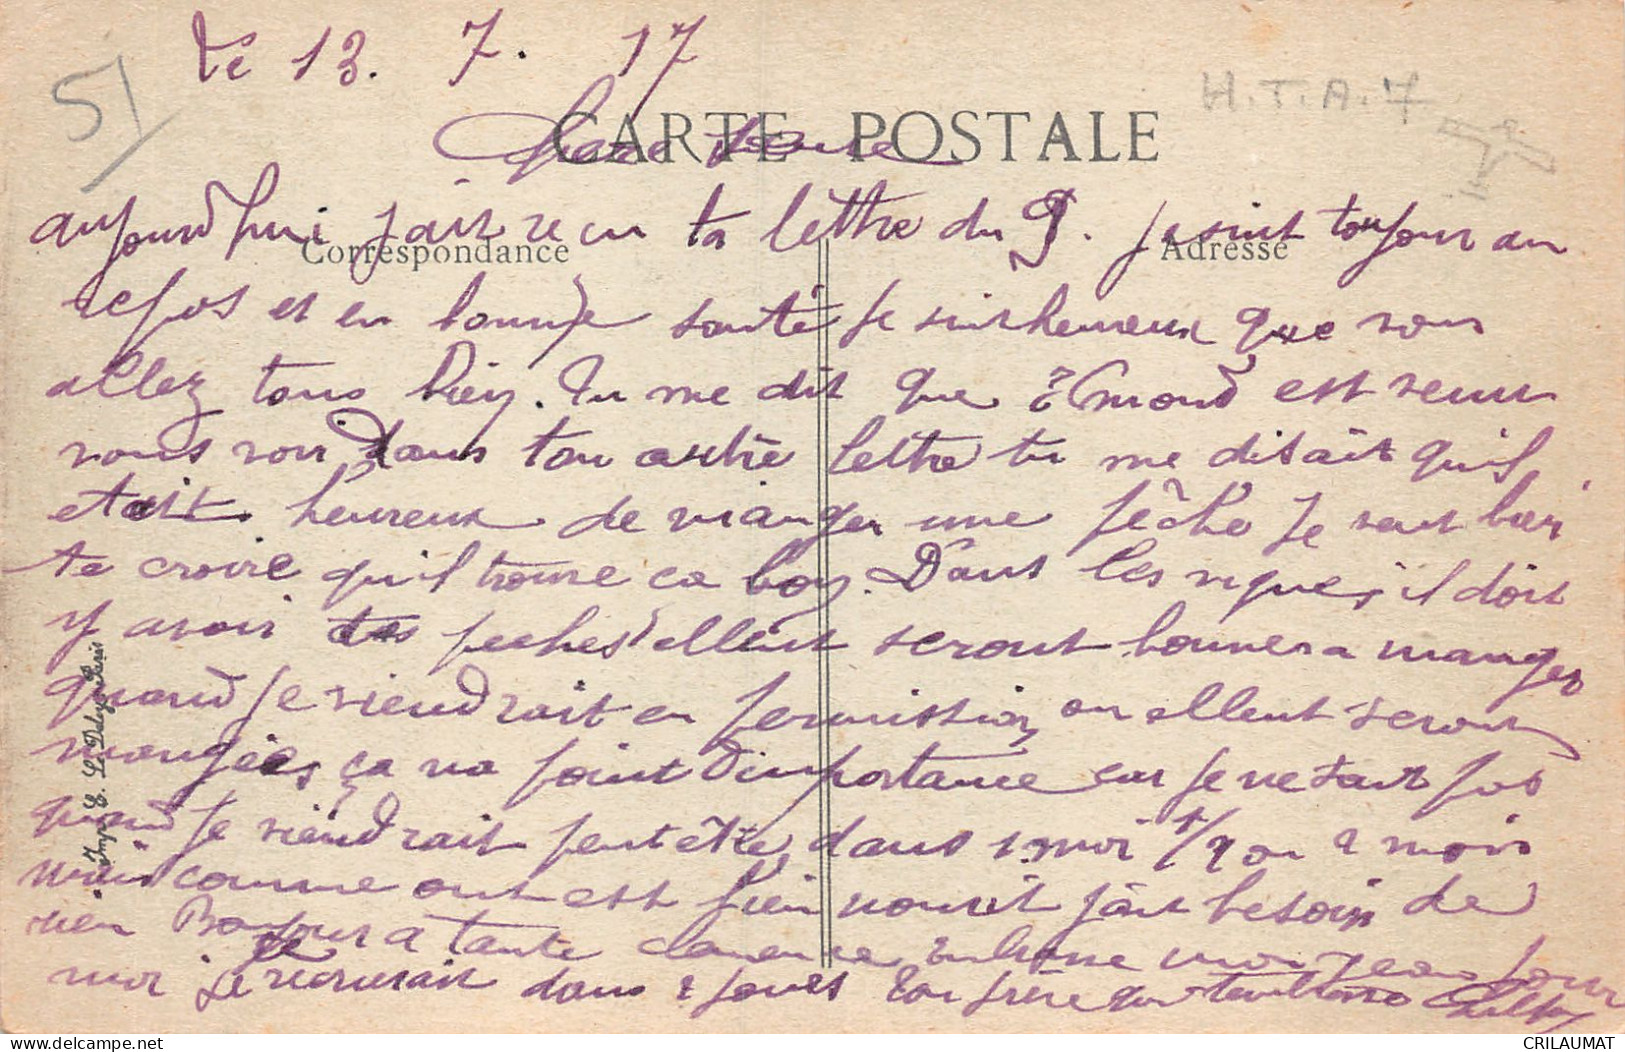 Le 13. 7. 17
51
H.T.A.7
CARTE POSTALE
Chere
aujourd'hui jait recu ta lettre du 9. je suit toujour au
Correspondance
Adresse
repos et en bonne santé je suis heureux que vous
allez tous bien. Tu me dit que Émond est venu
vous voir dans ton autre lettre tu me disait quil
etait heureux de manger une pêche je veut bien
te croire qu'il trouve ca bon. Dans les vignes il doit
y avoir des peches ellent seront bonnes a manger
quand je viendrait en permission ou ellent seront
mangées ça na point d'importance car je ne sait pas
quand je viendrait peut être dans 1 moi 1/2 ou 2 mois
mais comme ont est bien nourit jait besoin de
rien Bonjour a tante clemence Embrasse mon pour
moi je récrirait dans 2 jours Ton frère qui t'embrasse
Imp. E. Le Deley, Paris
CRILAUMAT